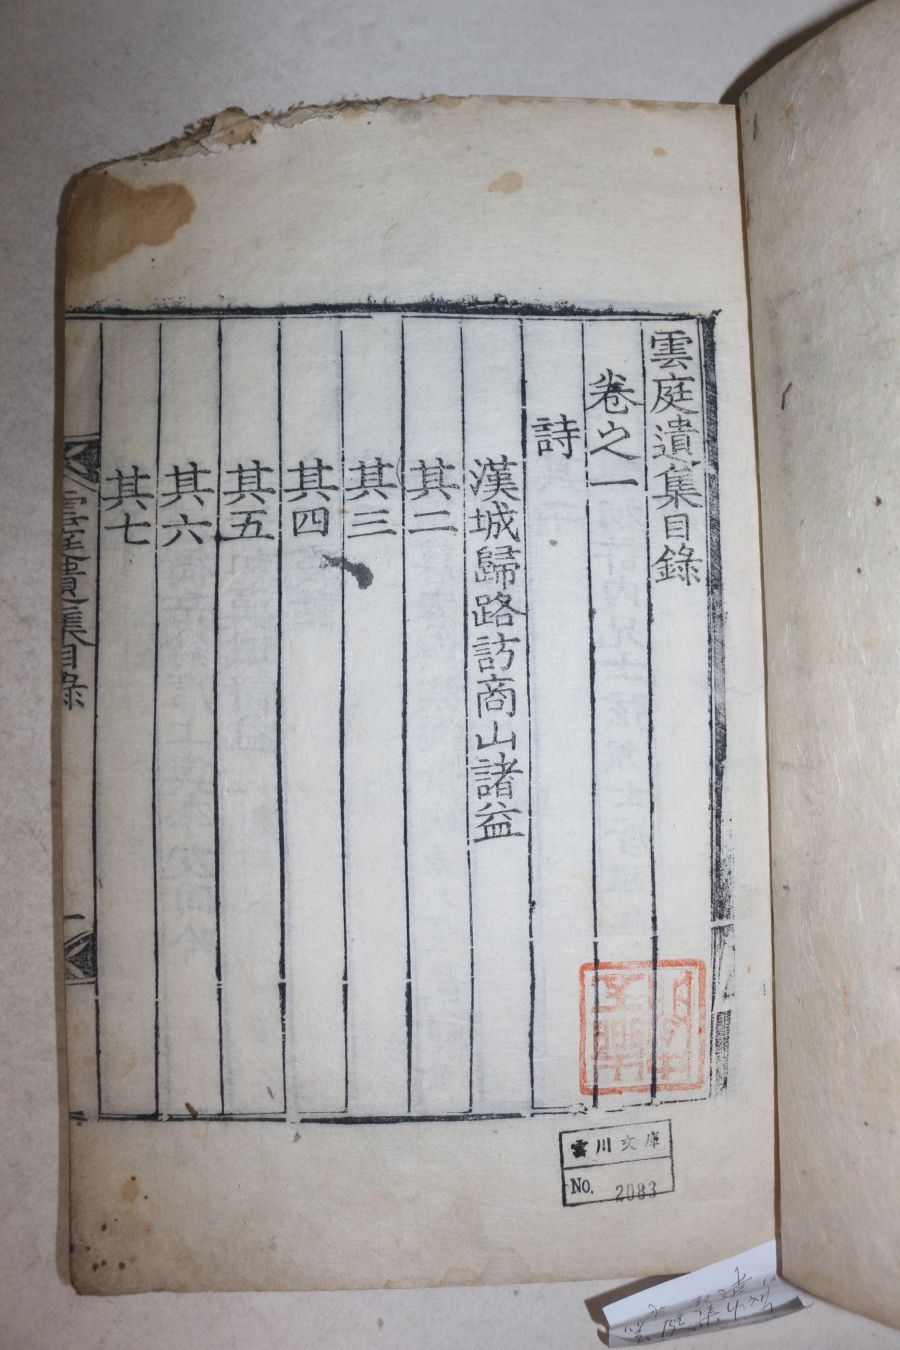 雲庭遺集目錄
卷之一
詩
漢城歸路訪商山諸益
其二
其三
其四
其五
其六
其七
雲庭遺集目錄
一
雲川文庫
No. 2083